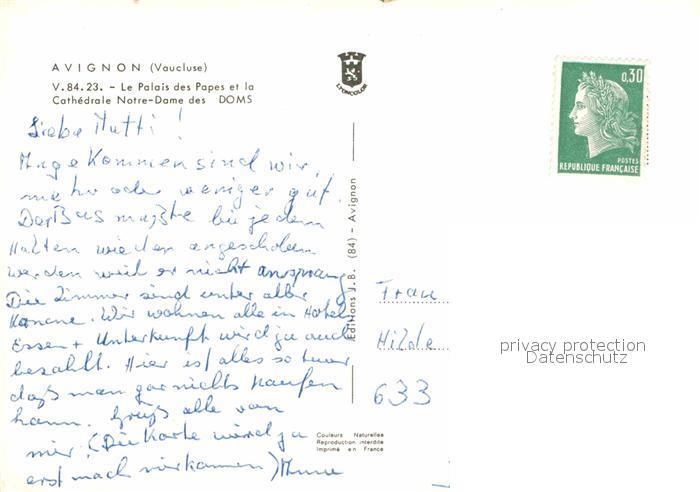 AVIGNON (Vaucluse)
V.84.23. – Le Palais des Papes et la
Cathédrale Notre-Dame des DOMS
LYONCOLOR
0,30
POSTES
REPUBLIQUE FRANÇAISE
Liebe Mutti!
Angekommen sind wir,
mehr oder weniger gut.
Der Bus mußte bei jedem
Halten wieder angeschoben
werden weil er nicht ansprang
Die Zimmer sind unter aller
Kanone. Wir wohnen alle in Hotels
Essen + Unterkunft wird ja auch
bezahlt. Hier ist alles so teuer
daß man gar nichts kaufen
kann. Grüß alle von
mir. (Die Karte wird ja
erst nach mir kommen)
Editions J.B. (84) - Avignon
Frau
Hilde
633
privacy protection
Datenschutz
Couleurs Naturelles
Reproduction interdite
Imprimé en France